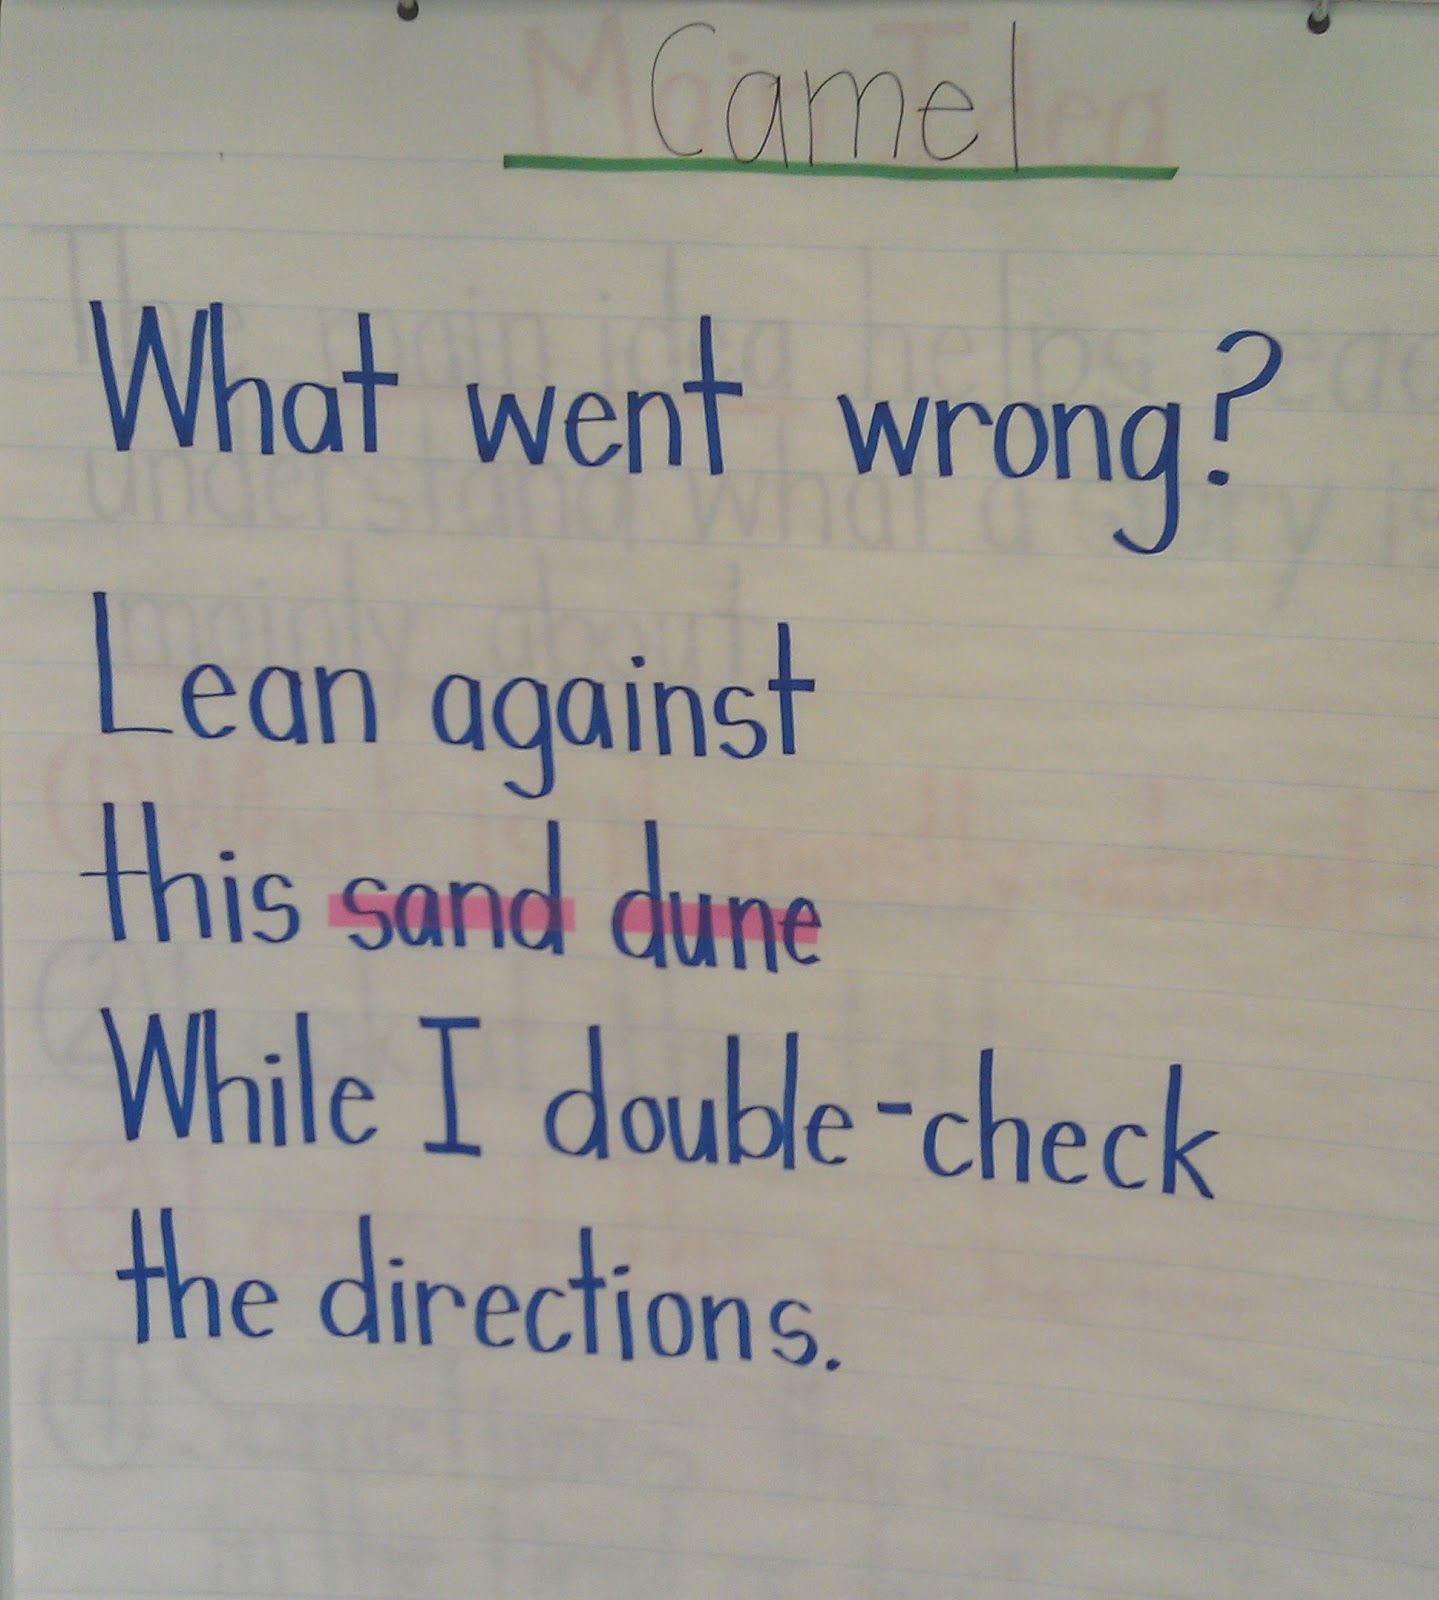 Camel
What went wrong?
Lean against
this sand dune
While I double-check
the directions.